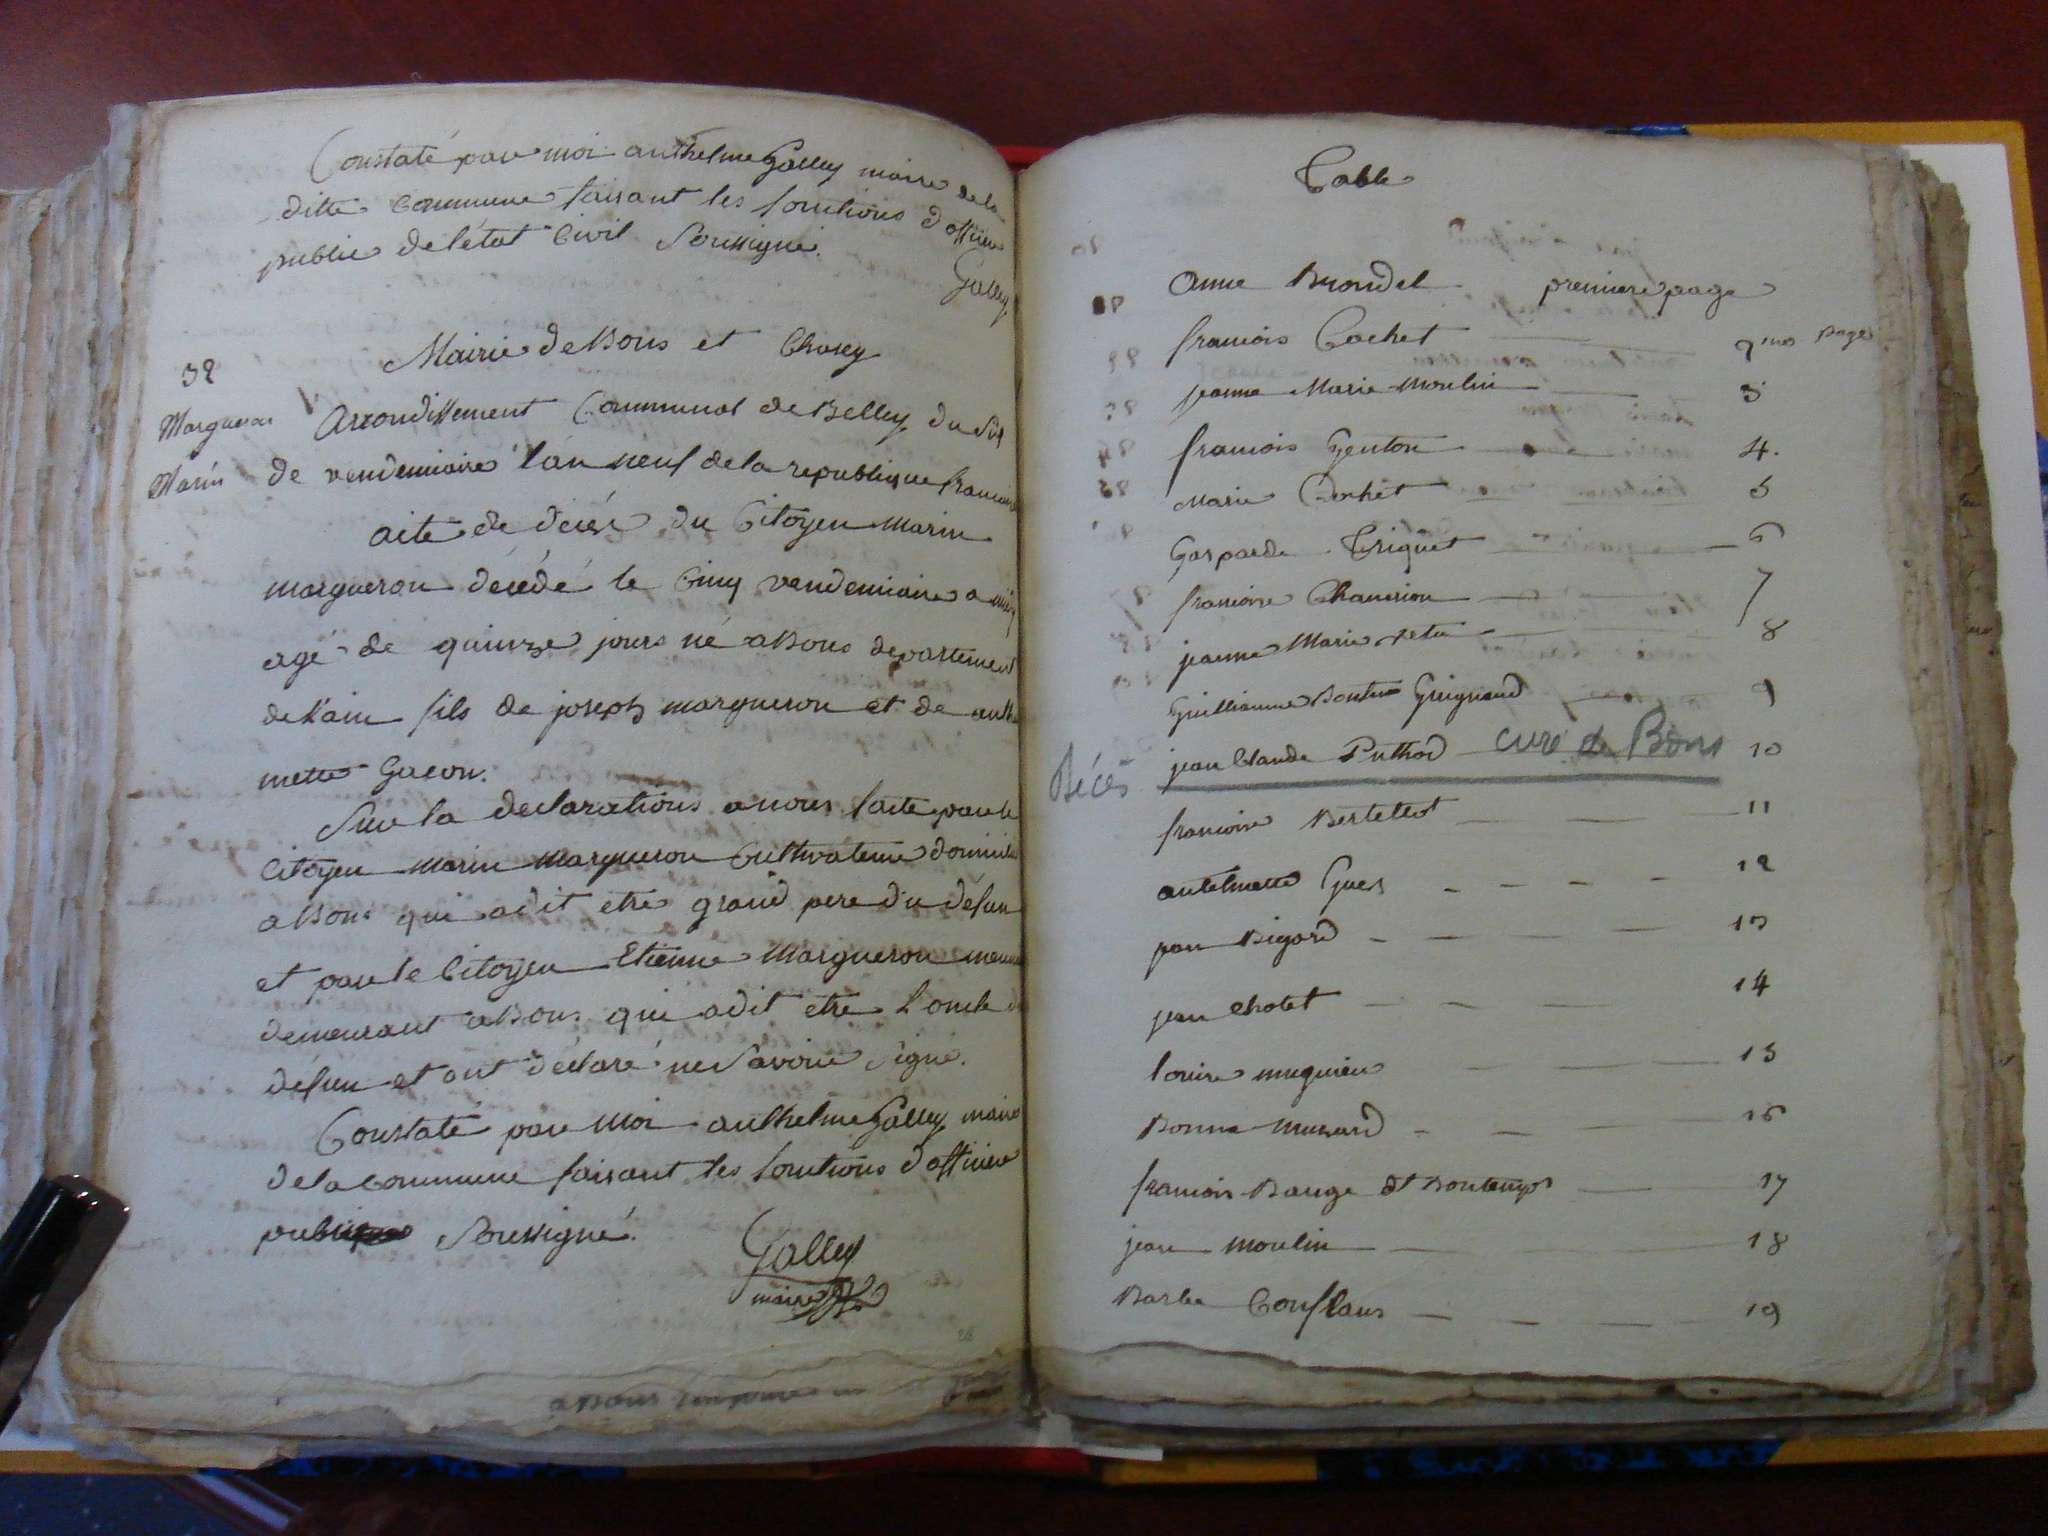 Constaté par moi anthelme Galley maire de la
ditte Commune faisant les fonctions d'officier
public de létat Civil Soussigné.
Galley
Mairie de Bons et Chosey
32
Margueron
Marin
Arrondissement Communal de Belley du Six
de vendemiaire l'an neuf de la republique francaise
acte de décés du Citoyen Marin
margueron décédé le Cinq vendemiaire a midy
agé de quinze jours né a Bons departement
de l'ain fils de joseph margueron et de anthel
mette Gacon.
Sur la declarations a nous faite par le
Citoyen marin margueron Cultivateur domicilié
a Bons qui a dit etre grand pere du défun
et par le Citoyen Etienne Margueron
demeurant a Bons qui a dit etre l'oncle du
défun et ont déclaré ne Savoir Signé.
Constaté par moi anthelme Galley maire
de la commune faisant les fonctions d'officier
Soussigné.
Galley
maire
28
a Bons
Table
anne Brondel premiere page
francois Cochet 2mes page
jeanne Marie Moulin 3
francois Genton 4.
Marie Cochet 5
Gasparde Triquet 6
francoise Chamrion 7
jeanne Marie 8
Guillaume Bontems Guignard 9
Décès jean Claude Puthod curé de Bons 10
francoise Bertellot 11
antelmette Guers 12
jean Bigard 13
jean Chotet 14
louise muguieu 15
Bonne Musard 16
francois Bauge dt Bontemps 17
jean moulin 18
Barbe Conflans 19